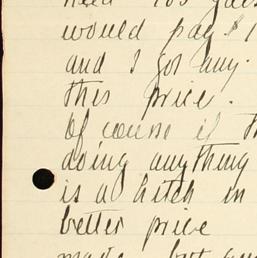 need
would pay $1
and I got any
this price.
Of course if th
doing anything
is a hitch in
better price
made, but